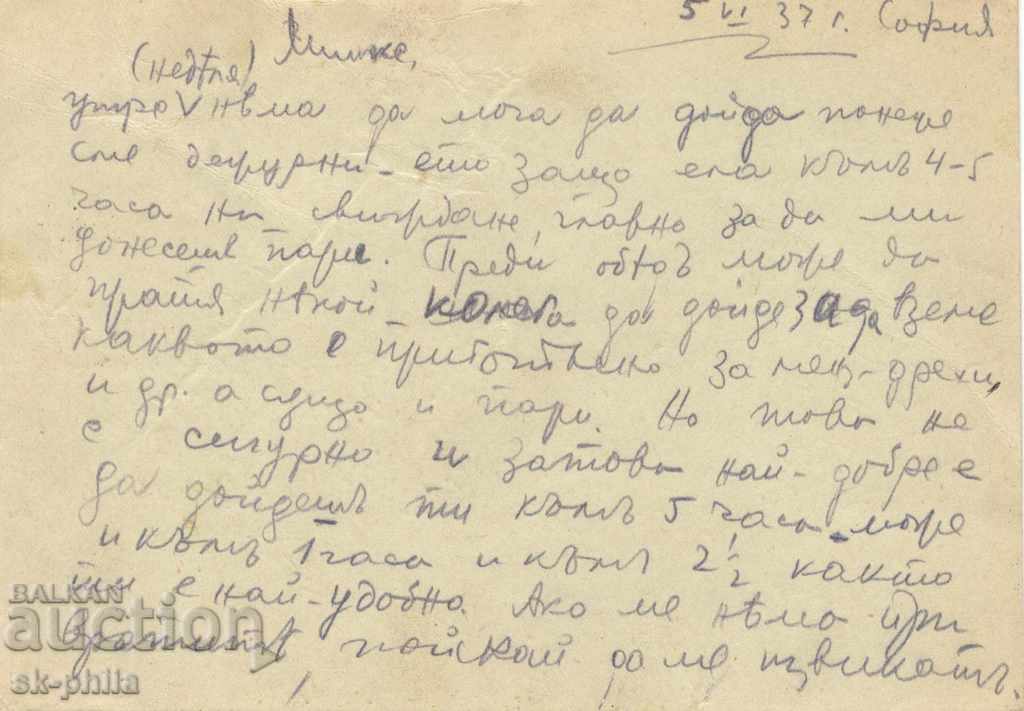 5 VI 37 г. София
Минке,
(недѣля)
утре V нѣма да мога да дойда понеже
сме дежурни - ето защо ела към 4-5
часа на свиждане, главно за да ми
донесеш пари. Преди обѣдъ може да
пратя нѣкой колега да дойде за да вземе
каквото е приготвено за мен - дрехи,
и др. а също и пари. Но това не
е сигурно и затова най-добре е
да дойдешъ ти къмъ 5 часа, може
и къмъ 1 часа и къмъ 2 1/2 както
ти е най-удобно. Ако ме нѣма при
вратитѣ поискай да ме извикатъ.
BALKAN
auction
sk-phila